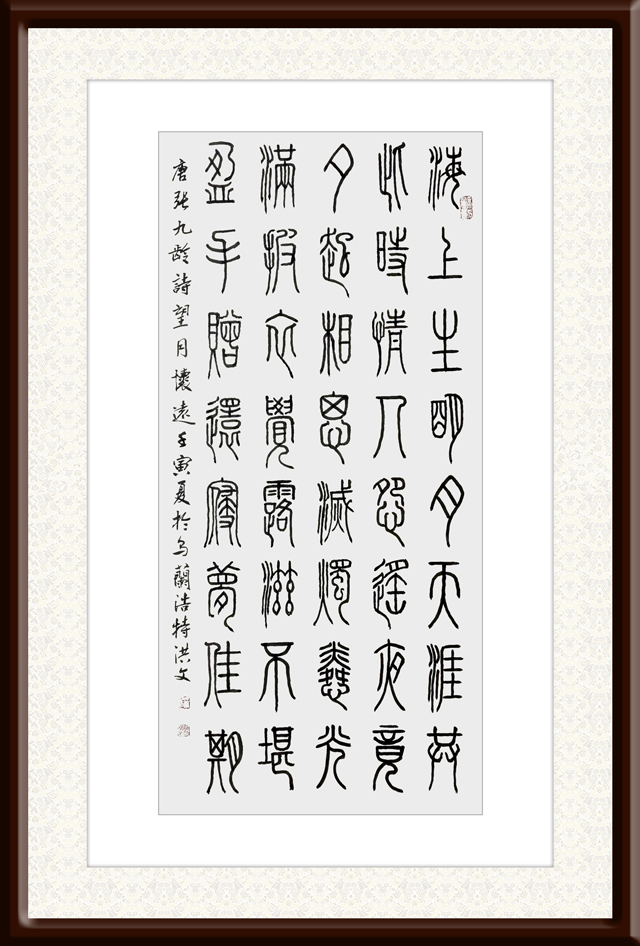 海上生明月天涯共
此時情人怨遙夜竟
夕起相思滅燭憐光
滿披衣覺露滋不堪
盈手贈還寢夢佳期
唐張九齡詩望月懷遠壬寅夏於烏蘭浩特洪文